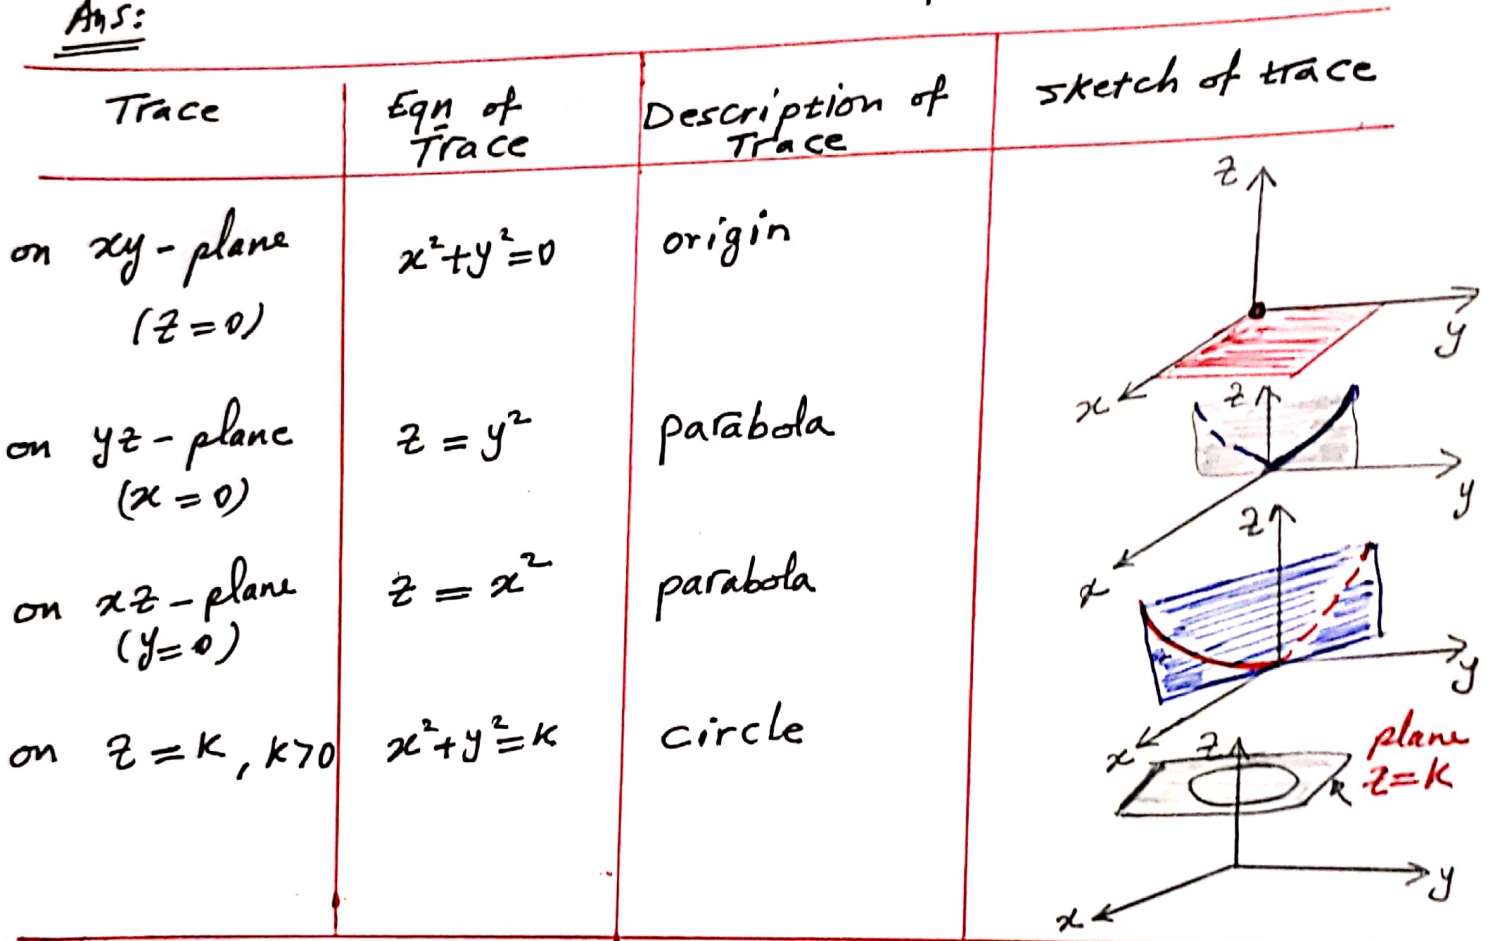 Ans:
Trace
Eqn of
Trace
Description of
Trace
sketch of trace
on xy-plane
(z=0)
x²+y²=0
origin
z
y
x
on yz-plane
(x=0)
z=y²
parabola
z
y
x
on xz-plane
(y=0)
z=x²
parabola
z
y
x
on z=k, k>0
x²+y²=k
circle
z
plane
z=k
y
x